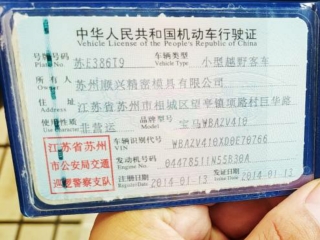 中华人民共和国机动车行驶证
Vehicle License of the People's Republic of China
号牌号码 苏E386T9 车辆类型 小型越野客车
Plate No. Vehicle Type
所有人 苏州联兴精密模具有限公司
Owner
住址 江苏省苏州市相城区望亭镇项路村巨华路
Address
使用性质 非营运 品牌型号 宝马WBAZV410
Use Character Model
江苏省苏州
市公安局交通
巡逻警察支队
车辆识别代号
VIN
发动机号码
Engine No.
注册日期 2014-01-13 发证日期 2014-01-13
Register Date Issue Date